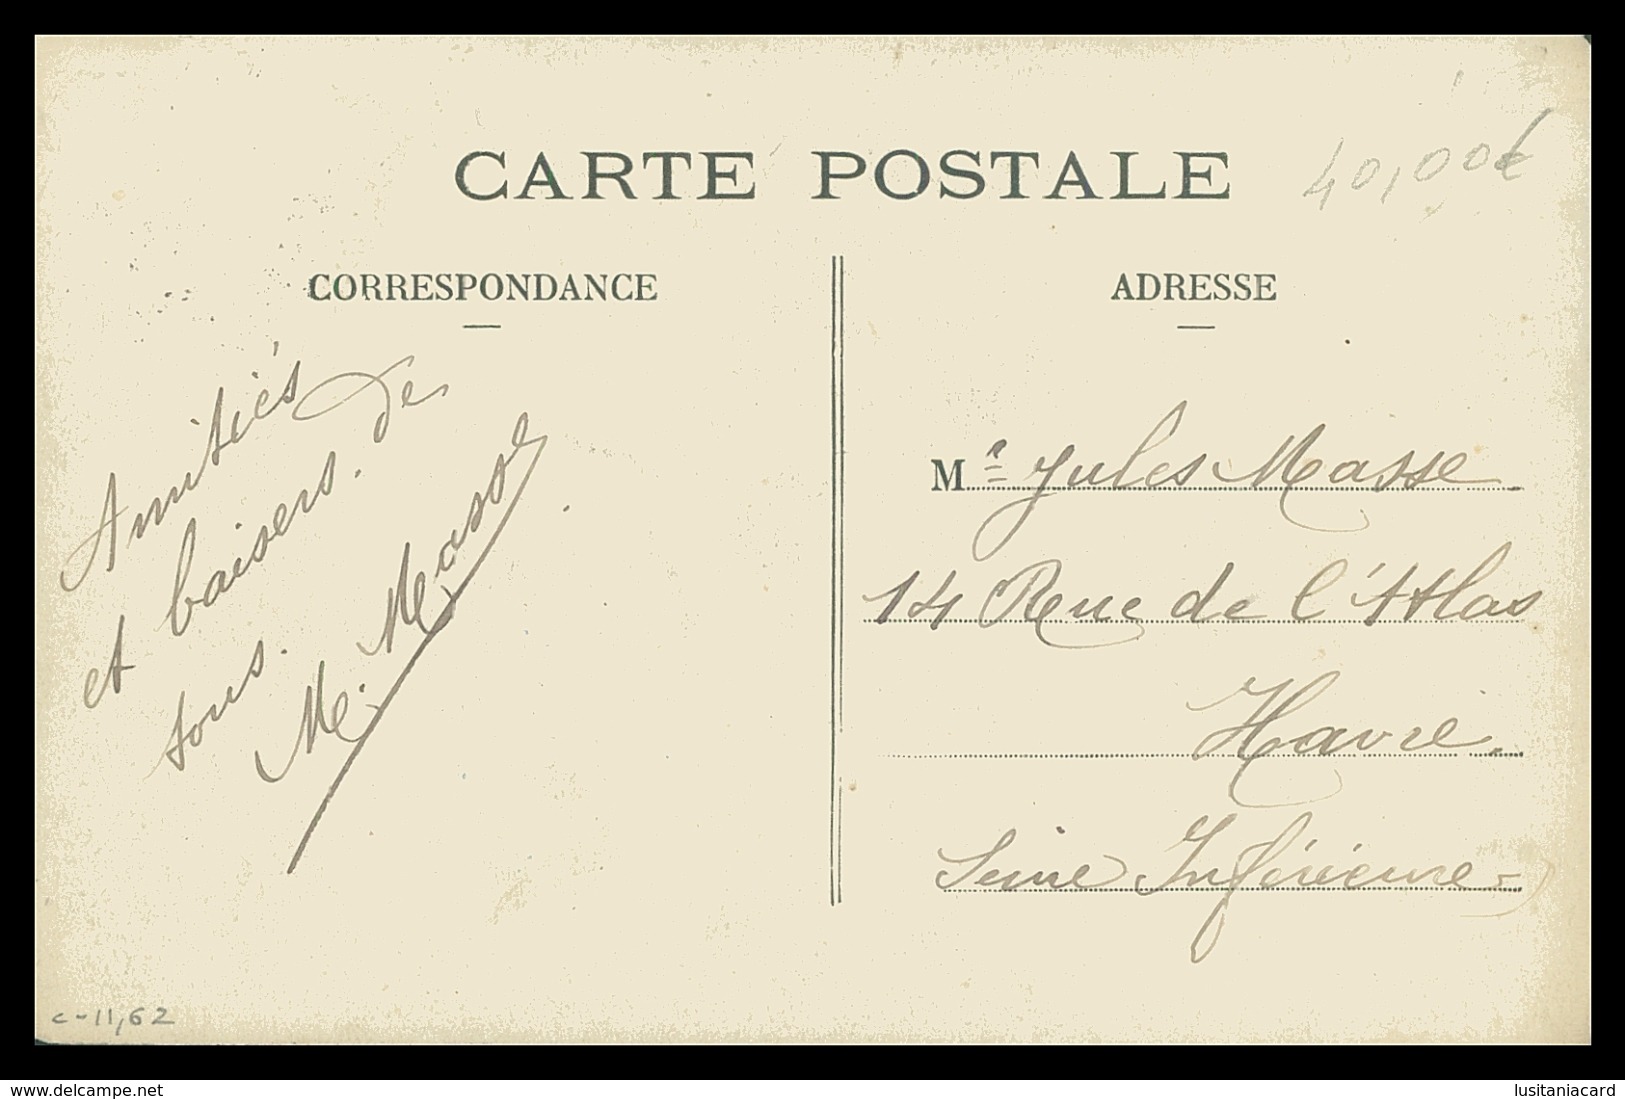 CARTE POSTALE
40,00€
CORRESPONDANCE
ADRESSE
Amitiés
et baisers. de
tous.
M. Masse
Mr Jules Masse
14 Rue de l'Atlas
Havre.
Seine Inférieure
c-11,62
www.delcampe.net
lusitaniacard